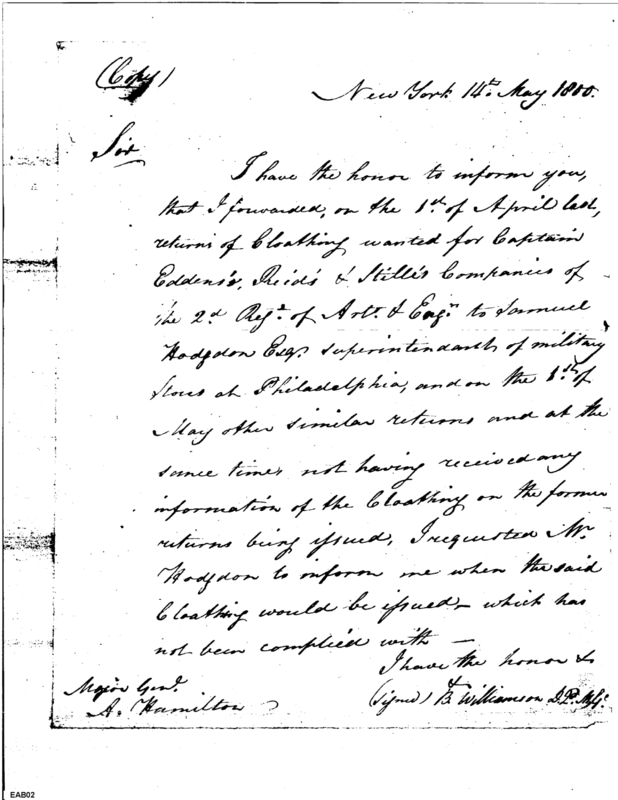 (Copy)
New York 14th. May 1800.
Sir
I have the honor to inform you,
that I forwarded, on the 1st. of April last,
returns of Cloathing wanted for Captain
Eddens's, Reid's & Stille's Companies of
the 2d. Regt. of Arty. & Engrs to Samuel
Hodgdon Esqr. Superintendant of military
Stores at Philadelphia, and on the 1st. of
May other similar returns and at the
same time, not having received any
information of the Cloathing on the former
returns being issued, I requested Mr.
Hodgdon to inform me when the said
Cloathing would be issued – which has
not been complied with —
I have the honor &
&
Major Genl.
A. Hamilton
(signed) B Williamson
EAB02